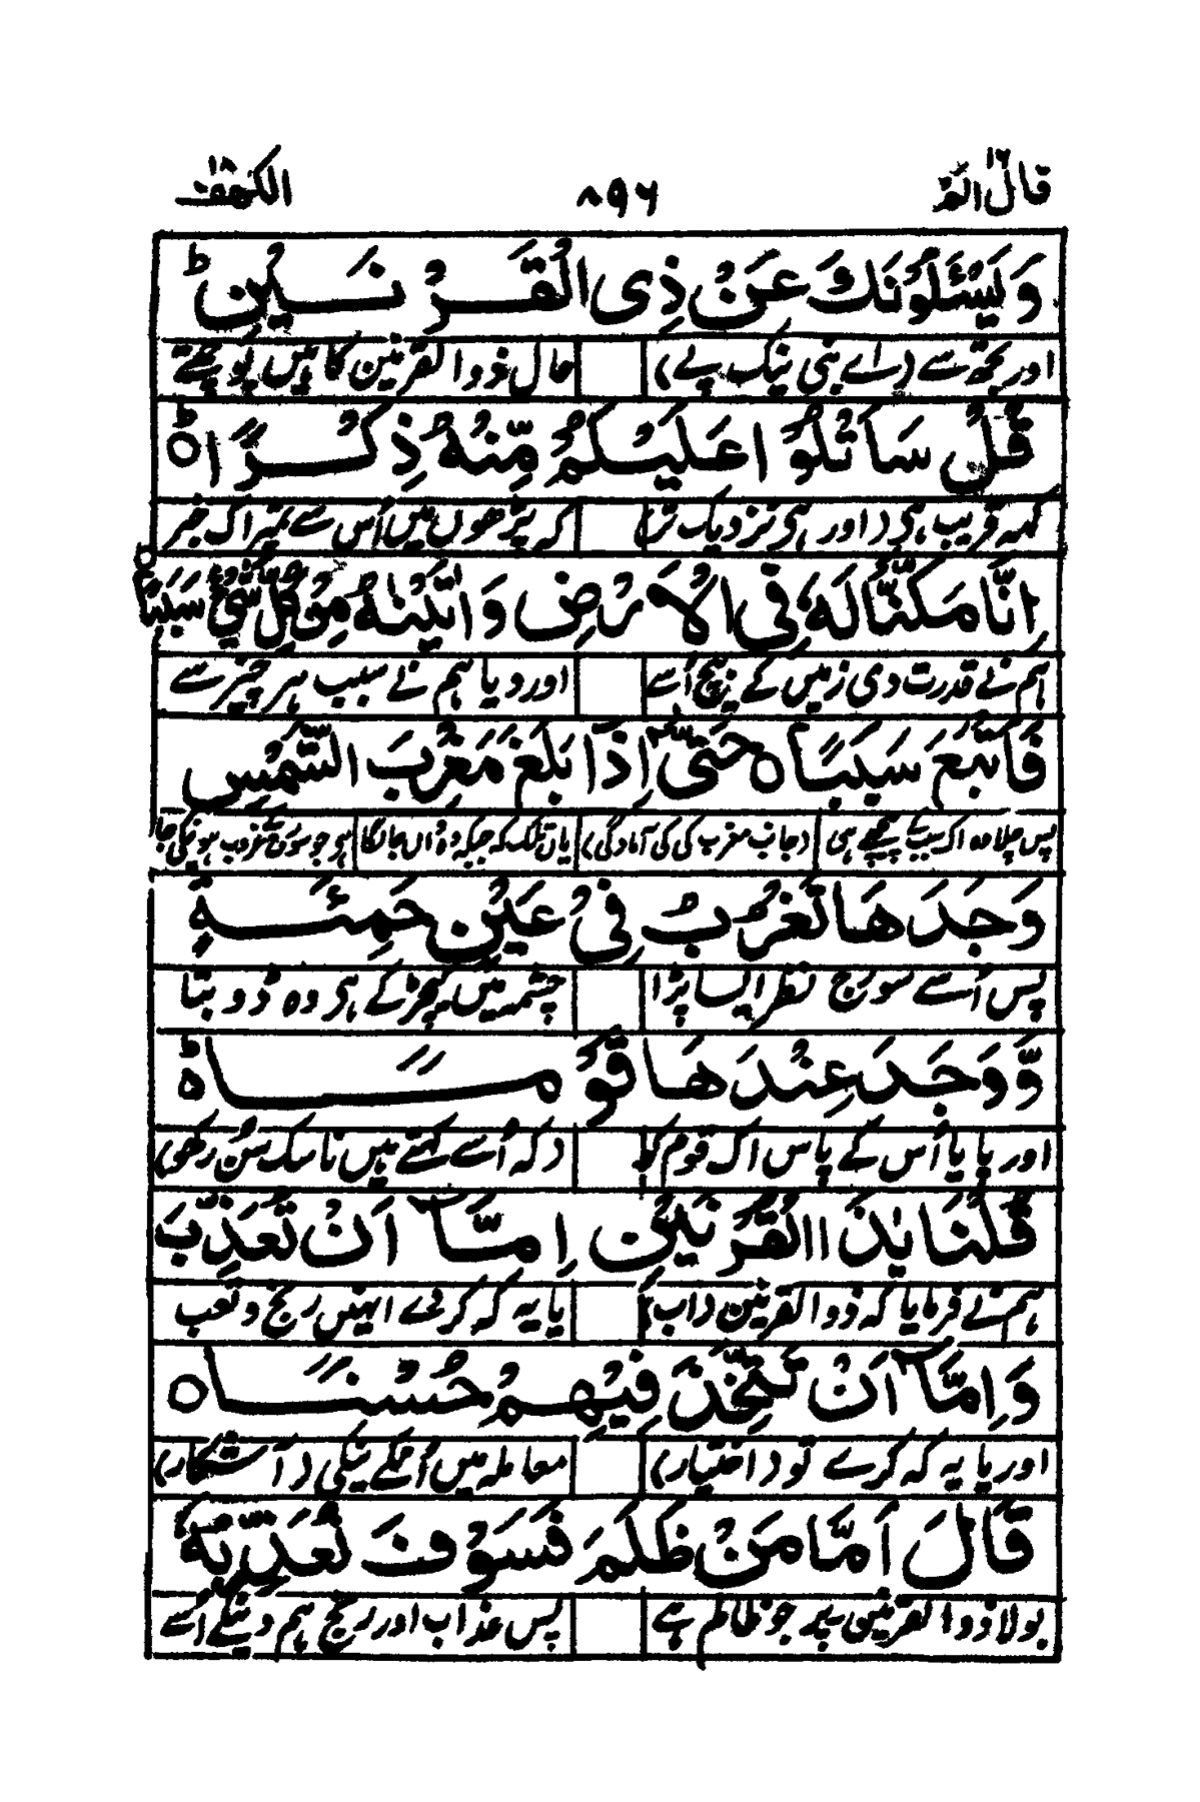 قال الم ١٦ ٨٩٦ الكهف ١٨
وَيَسْـَٔلُوْنَكَ عَنْ ذِى الْقَرْنَيْنِ ؕ
اور تجھ سے (اے نبی نیک پے) حال ذوالقرنین کا ہیں پوچھتے
قُلْ سَاَتْلُوْا عَلَيْكُمْ مِّنْهُ ذِكْرًا ؕ
کہہ قریب ہی (اور ہی نزدیک تر) کہ پڑھوں میں اُس سے تمپر اک خبر
اِنَّا مَكَّنَّا لَهٗ فِى الْاَرْضِ وَاٰتَيْنٰهُ مِنْ كُلِّ شَىْءٍ سَبَبًا ۙ
ہم نے قدرت دی زمیں کے بیچ اُسے اور دیا ہم نے سبب ہر چیز سے
فَاَتْبَعَ سَبَبًا ۝ حَتّٰٓى اِذَا بَلَغَ مَغْرِبَ الشَّمْسِ
پس چلا وہ اک سبب کے پیچھے ہی (جانب مغرب کی کی آمادگی) یاں تلک کہ جبکہ وہ واں جا لگا ہو جو سورج کے غروب ہونیکی جا
وَجَدَهَا تَغْرُبُ فِىْ عَيْنٍ حَمِئَةٍ
پس اُسے سورج نظر ایسا پڑا چشمہ میں کیچڑ کے ہی وہ ڈوبتا
وَّوَجَدَ عِنْدَهَا قَوْمًا ؕ
اور پایا اُس کے پاس اک قوم کو (کہ اُسے کہتے ہیں ناسک سن رکھی)
قُلْنَا يٰذَا الْقَرْنَيْنِ اِمَّآ اَنْ تُعَذِّبَ
ہم نے فرمایا کہ ذوالقرنین (اب) یا یہ کہ کر لے انہیں رنج و تعب
وَاِمَّآ اَنْ تَتَّخِذَ فِيْهِمْ حُسْنًا ۝
اور یا یہ کہ کرے تو (اختیار) معاملہ میں اُنکے نیکی (آشکار)
قَالَ اَمَّا مَنْ ظَلَمَ فَسَوْفَ نُعَذِّبُهٗ
بولا ذوالقرنین پر جو ظالم ہے پس عذاب اور رنج ہم دینگے اُسے